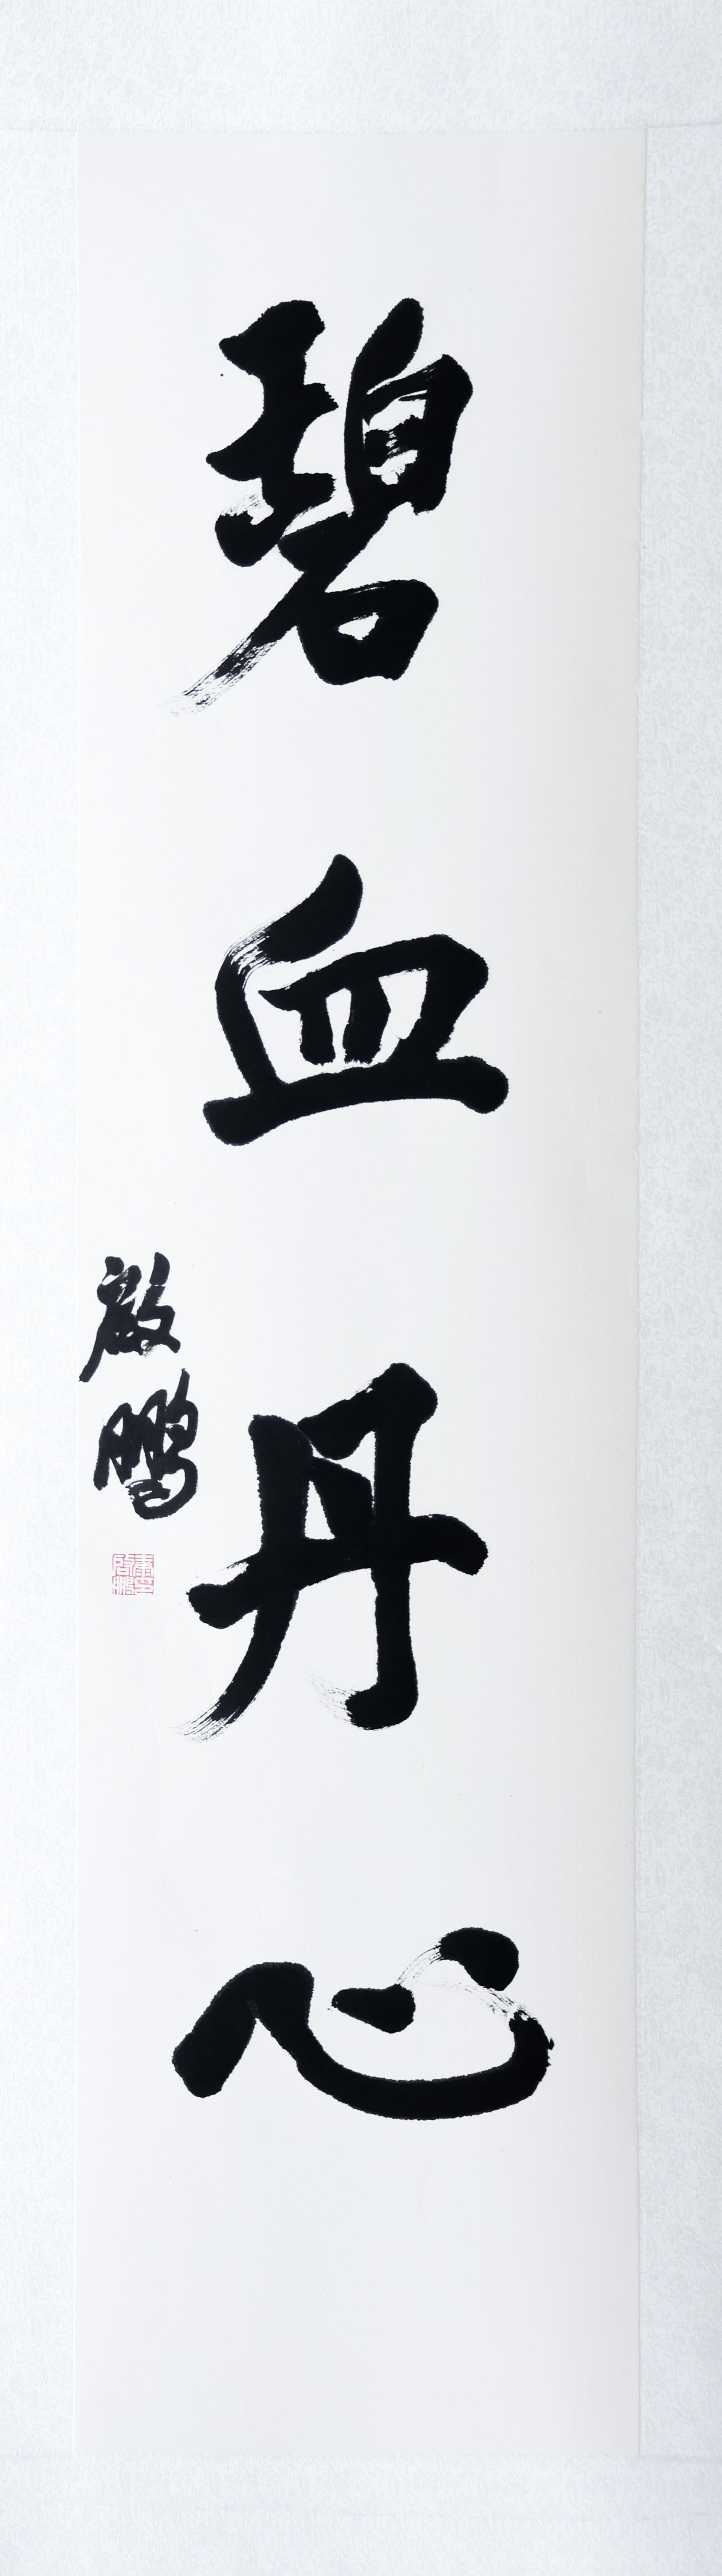 碧血丹心
啟鵬